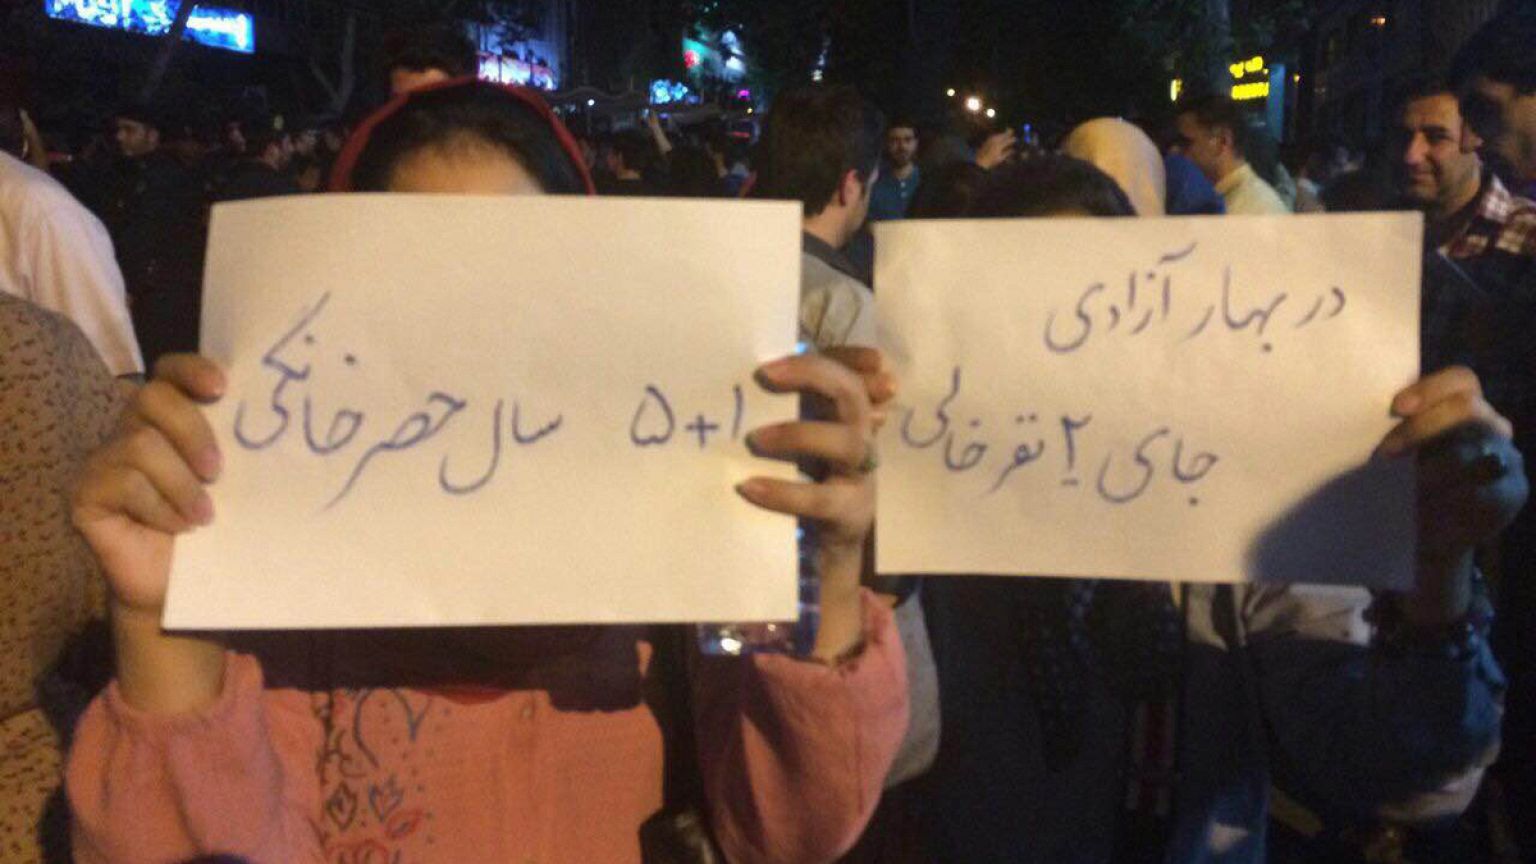 در بهار آزادی
جای ۲ نفر خالی
۱+۵ سال حصر خانگی